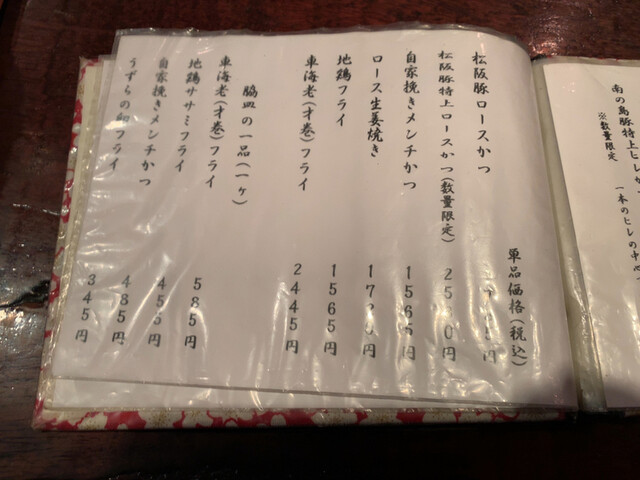 南の島豚特上ヒレか
※数量限定
一本のヒレの中や
単品価格(税込)
松阪豚ロースかつ
松阪豚特上ロースかつ(数量限定)
自家挽きメンチかつ 1565円
ロース生姜焼き
地鶏フライ 1565円
車海老(才巻)フライ 2445円
脇皿の一品(一ヶ)
車海老(才巻)フライ 585円
地鶏ササミフライ 455円
自家挽きメンチかつ 485円
うずらの卵フライ 345円